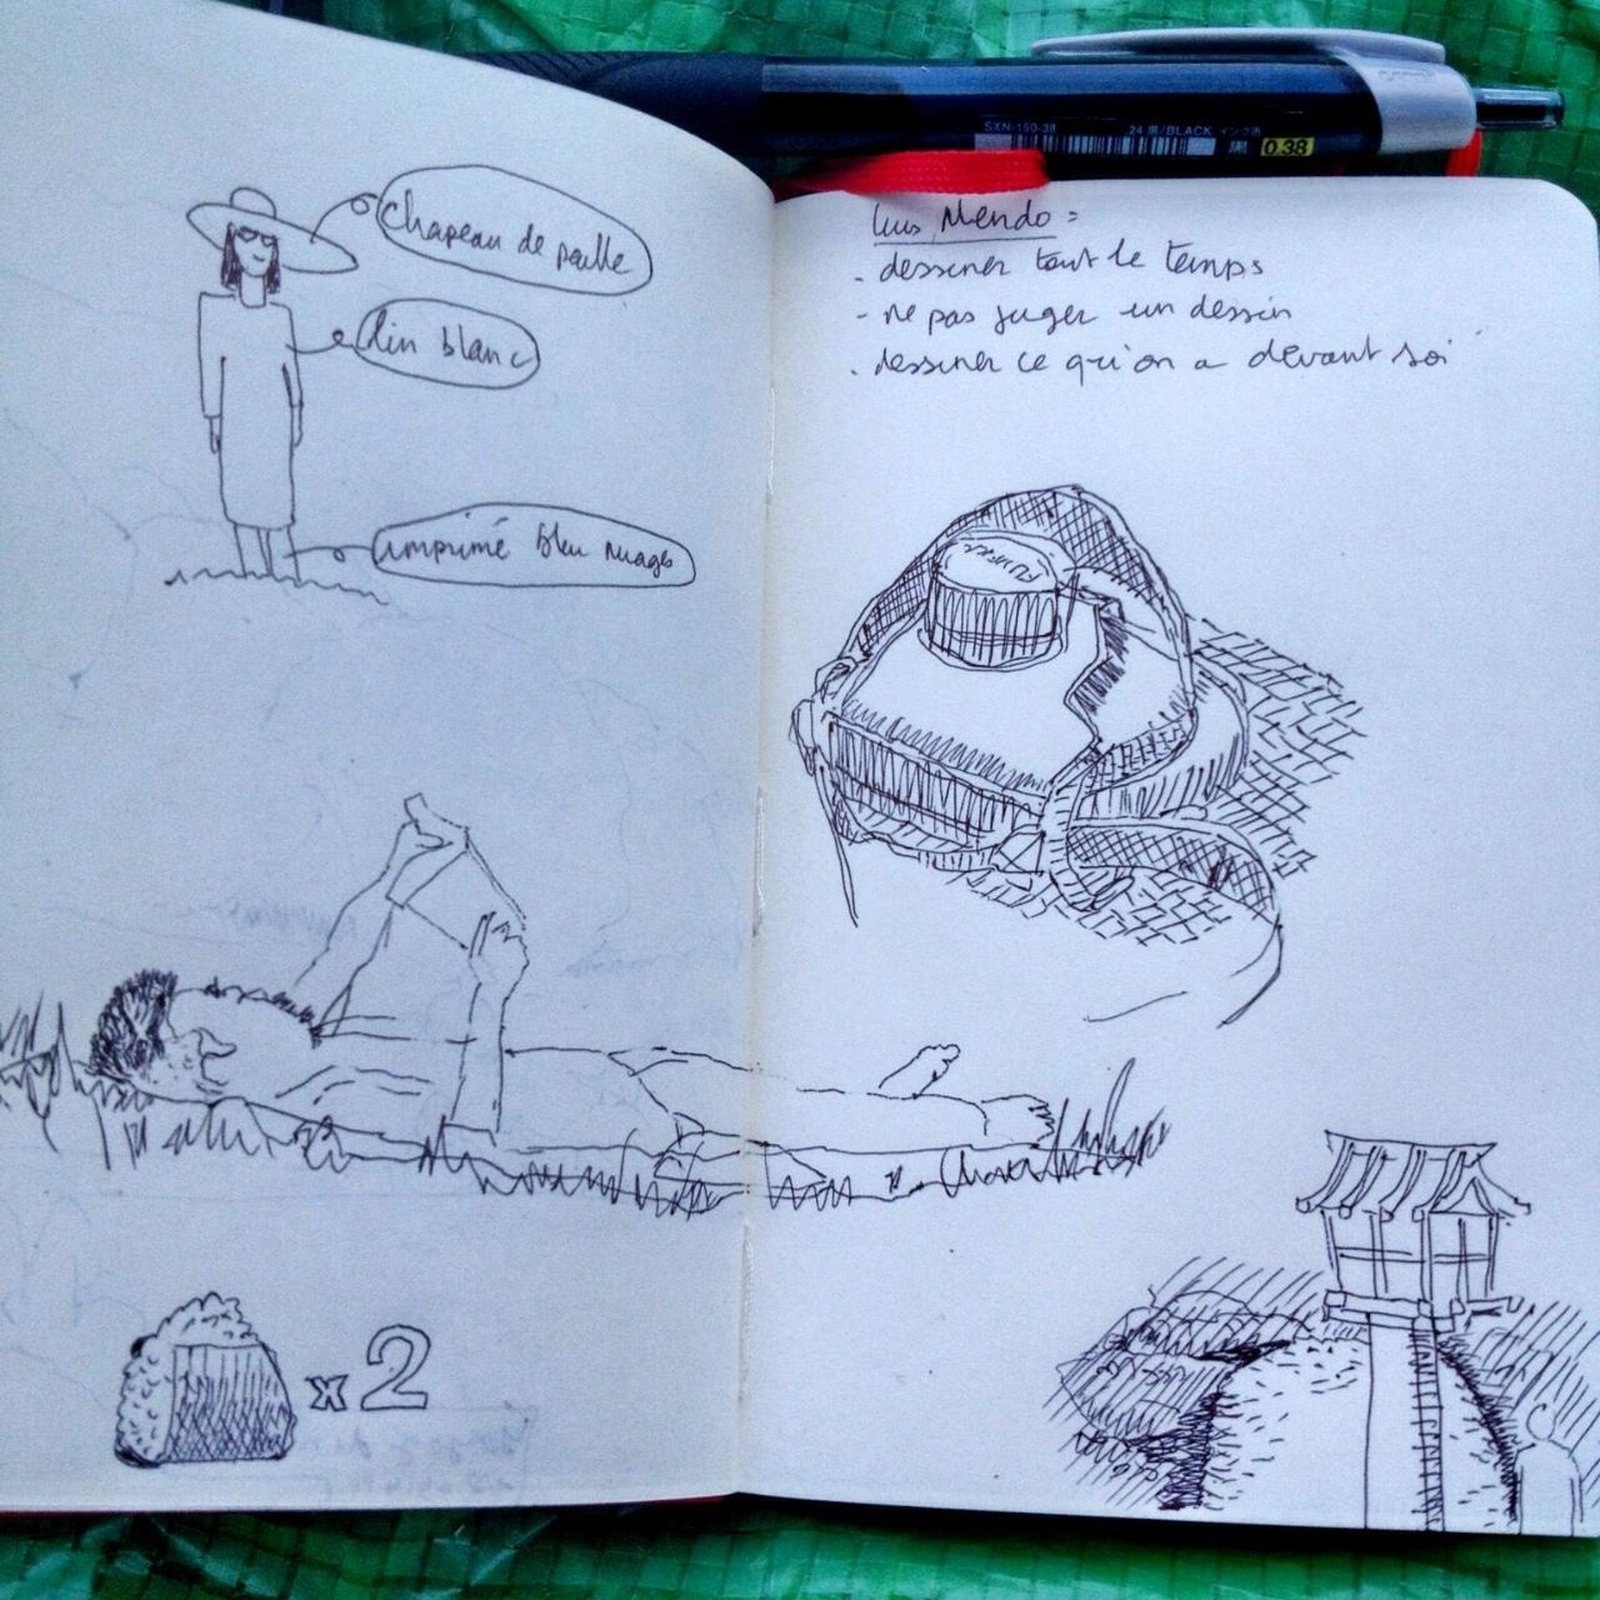 SXN-150-38
24 黒/BLACK インク色
黒 0.38
chapeau de paille
lin blanc
imprimé bleu nuages
Luis Mendo =
- dessiner tout le temps
- ne pas juger un dessin
- dessiner ce qu'on a devant soi
x 2